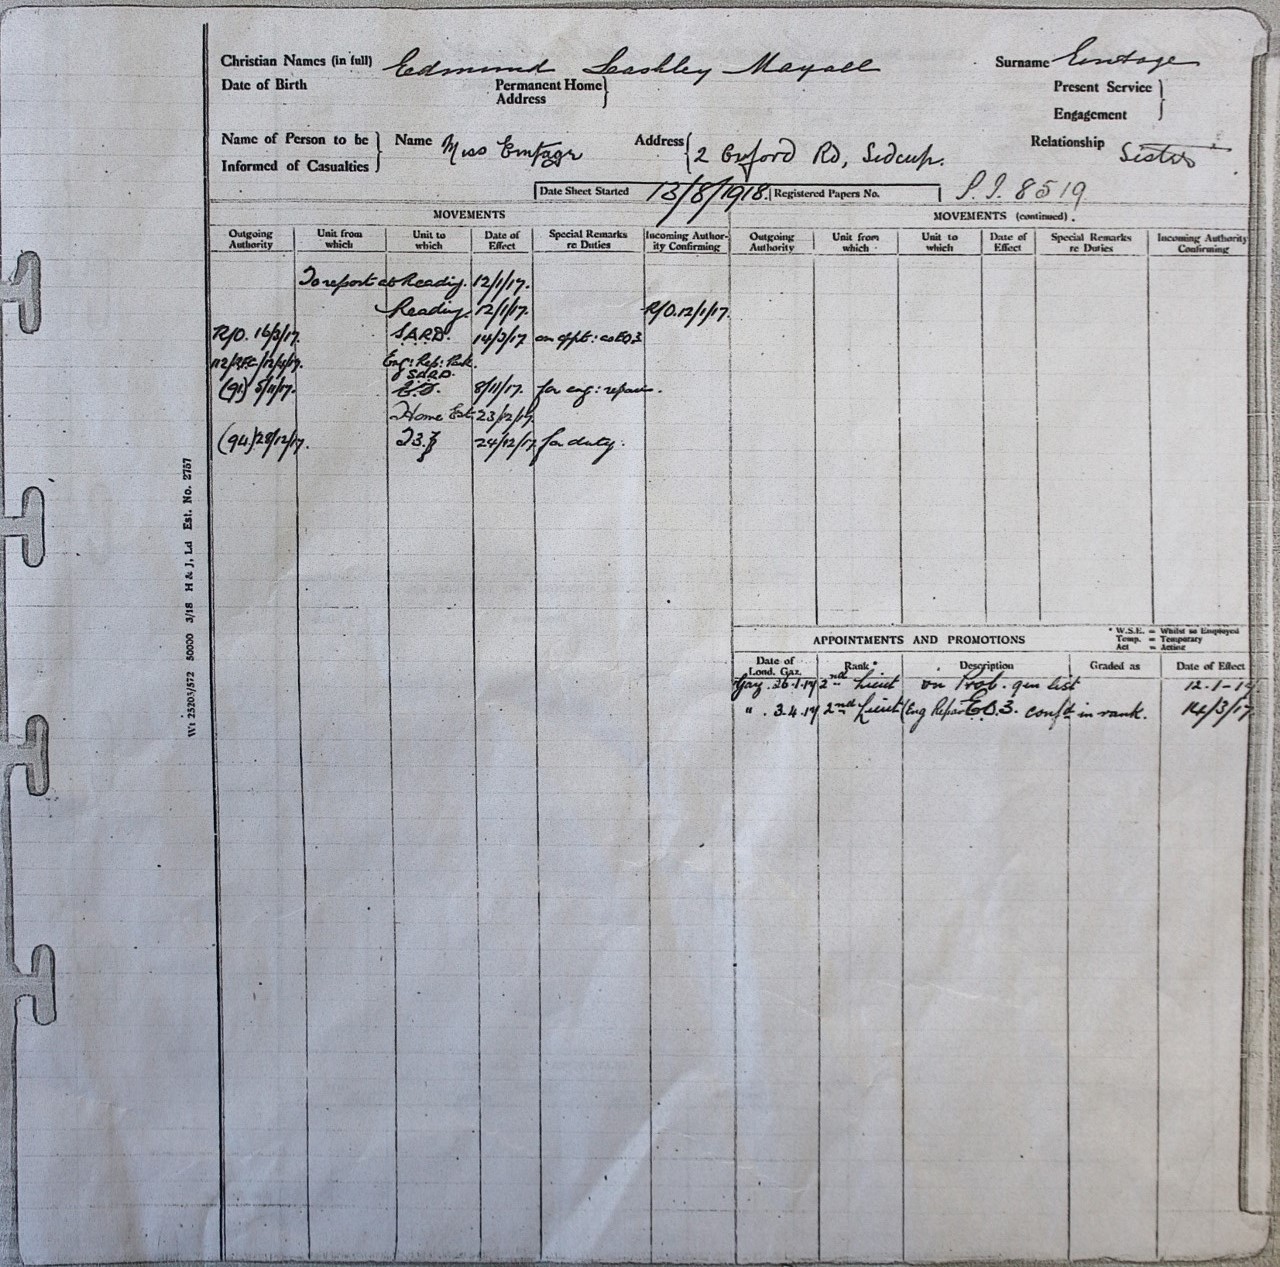 Christian Names (in full) Edmund Lashley Mayall Surname Emtage
Date of Birth Permanent Home Address Present Service
Engagement
Name of Person to be Informed of Casualties Name Miss Emtage Address 2 Oxford Rd, Sidcup. Relationship Sister
Date Sheet Started 13/8/1918. Registered Papers No. P.I. 8519
MOVEMENTS MOVEMENTS (continued).
Outgoing Authority Unit from which Unit to which Date of Effect Special Remarks re Duties Incoming Author-ity Confirming Outgoing Authority Unit from which Unit to which Date of Effect Special Remarks re Duties Incoming Authority Confirming
To report at Reading. 12/1/17.
Reading 12/1/17. R/O. 12/1/17.
R/O. 16/3/17. S.A.R.D. 14/3/17 on appt: as EO3
Eng: Rep: Park.
S.A.R.D.
(91) 5/11/17. 8/11/17. for eng: repair.
Home Est. 23/12/17
(94) 28/12/17. 24/12/17 for duty.
Wt 25203/572 50000 3/18 H & J, Ld Est. No. 2757
APPOINTMENTS AND PROMOTIONS
* W.S.E. = Whilst so Employed
Temp. = Temporary
Act = Acting
Date of Lond. Gaz. Rank * Description Graded as Date of Effect
Gaz. 26.1.17 2nd Lieut on Prob. gen list 12-1-17
" . 3.4.17 2nd Lieut (Eng Repair E.O.3. confd in rank. 14/3/17